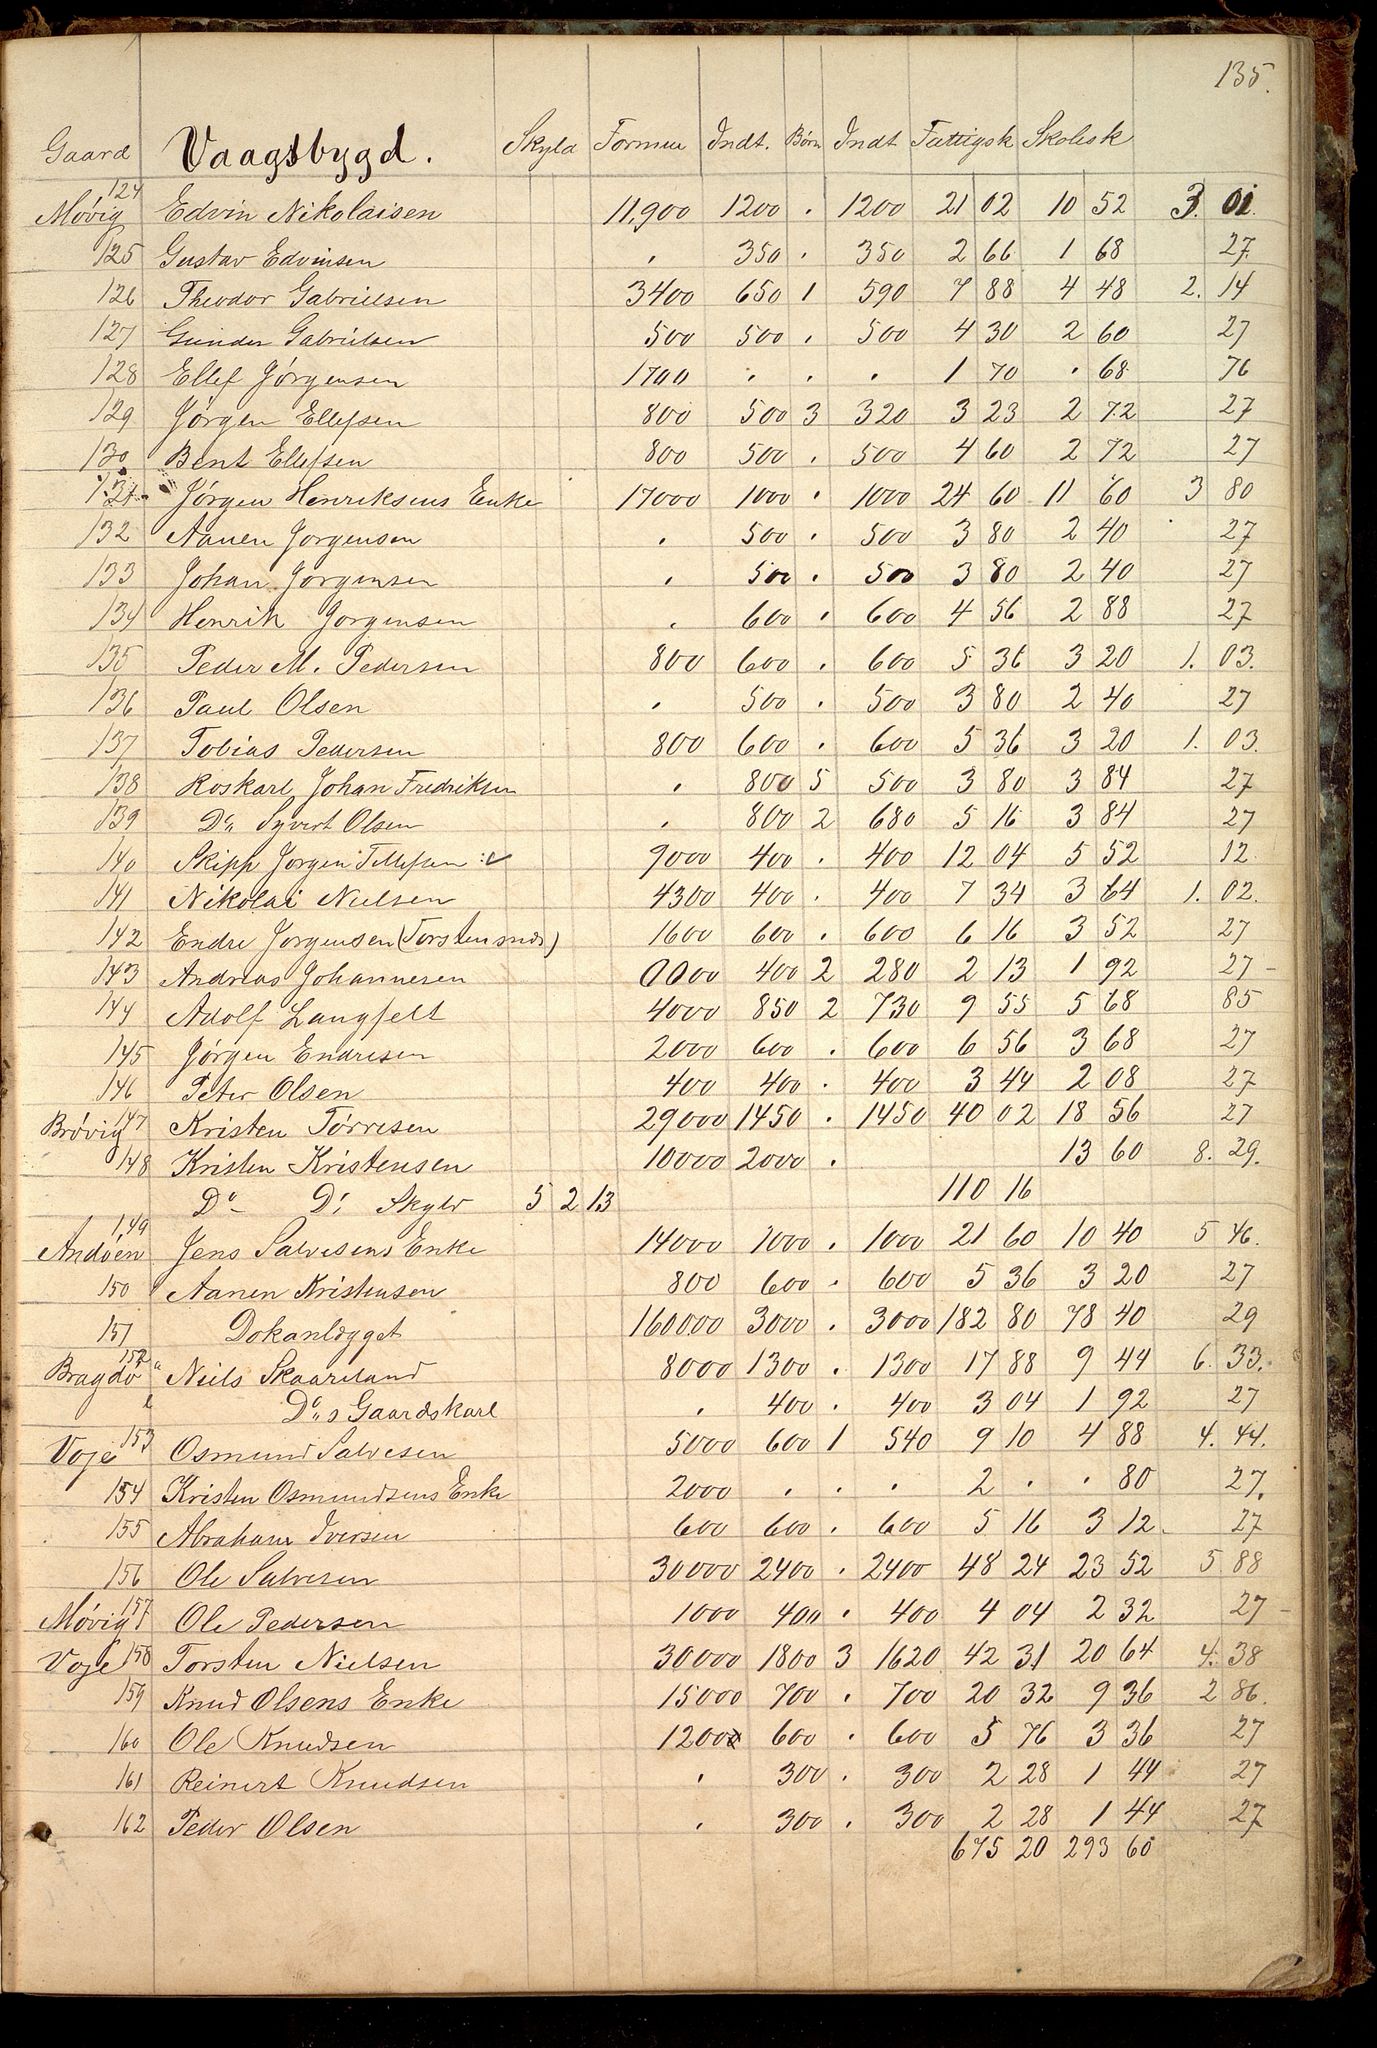 135.
Gaard Vaagsbygd. Skyld Formue Indt. Børn Indt Fattigsk Skolesk
Møvig 124 Edvin Nikolaisen 11,900 1200 . 1200 21 02 10 52 3. 01.
125 Gustav Edvinsen . 350 . 350 2 66 1 68 27.
126 Theodor Gabrielsen 3400 650 1 590 7 88 4 48 2. 14
127 Gunder Gabrielsen 500 500 . 500 4 30 2 60 27
128 Ellef Jørgensen 1700 . . . 1 70 . 68 76
129 Jørgen Ellefsen 800 500 3 320 3 23 2 72 27
130 Bent Ellefsen 800 500 . 500 4 60 2 72 27
131 Jørgen Henriksens Enke 17000 1000 . 1000 24 60 11 60 3 80
132 Aanen Jørgensen . 500 . 500 3 80 2 40 27
133 Johan Jørgensen . 500 . 500 3 80 2 40 27
134 Henrik Jørgensen . 600 . 600 4 56 2 88 27
135 Peder M. Pedersen 800 600 . 600 5 36 3 20 1. 03.
136 Paul Olsen . 500 . 500 3 80 2 40 27
137 Tobias Pedersen 800 600 . 600 5 36 3 20 1. 03.
138 Roskarl Johan Fredriksen . 800 5 500 3 80 3 84 27
139 Do Syvert Olsen . 800 2 680 5 16 3 84 27
140 Skipp Jørgen Tellefsen :v 9000 400 . 400 12 04 5 52 12
141 Nikolai Nielsen 4300 400 . 400 7 34 3 64 1. 02.
142 Endre Jørgensen (Torstensnes) 1600 600 . 600 6 16 3 52 27
143 Andreas Johannesen 0000 400 2 280 2 13 1 92 27 -
144 Adolf Langfelt 4000 850 2 730 9 55 5 68 85
145 Jørgen Endresen 2000 600 . 600 6 56 3 68 27
146 Peter Olsen 400 400 . 400 3 44 2 08 27
Brøvig 147 Kristen Tørresen 29000 1450 . 1450 40 02 18 56 27
148 Kristen Kristensen 10000 2000 . 13 60 8. 29.
Do Do Skyld 5 2 13 110 16
Andøen 149 Jens Salvesens Enke 14000 1000 . 1000 21 60 10 40 5 46.
150 Aanen Kristensen 800 600 . 600 5 36 3 20 27
151 Dokanlægget 160000 3000 . 3000 182 80 78 40 29
Bragdø 152 a Niels Skaareland 8000 1300 . 1300 17 88 9 44 6. 33.
Do,,s Gaardskarl . 400 . 400 3 04 1 92 27
Voje 153 Osmund Salvesen 5000 600 1 540 9 10 4 88 4. 44.
154 Kristen Osmundsens Enke 2000 . . . 2 . . 80 27.
155 Abraham Iversen 600 600 . 600 5 16 3 12 27
156 Ole Salvesen 30000 2400 . 2400 48 24 23 52 5 88
Møvig 157 Ole Pedersen 1000 400 . 400 4 04 2 32 27 -
Voje 158 Torsten Nielsen 30000 1800 3 1620 42 31 20 64 4. 38
159 Knud Olsens Enke 15000 700 . 700 20 32 9 36 2 86.
160 Ole Knudsen 1200 600 . 600 5 76 3 36 27
161 Reinert Knudsen . 300 . 300 2 28 1 44 27
162 Peder Olsen . 300 . 300 2 28 1 44 27
675 20 293 60